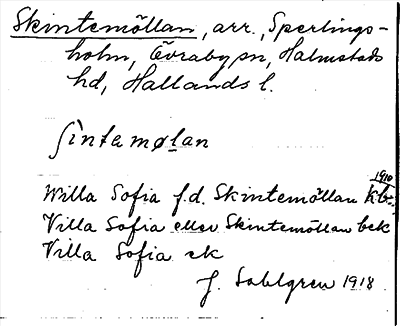 Skintemöllan, arr., Sperlings-
holm, Övraby sn, Halmstads
hd, Hallands l.
ʃìntemølan
1910
Willa Sofia f.d. Skintemöllan Kbr.
Villa Sofia eller Skintemöllan bek
Villa Sofia ek
J. Sahlgren 1918